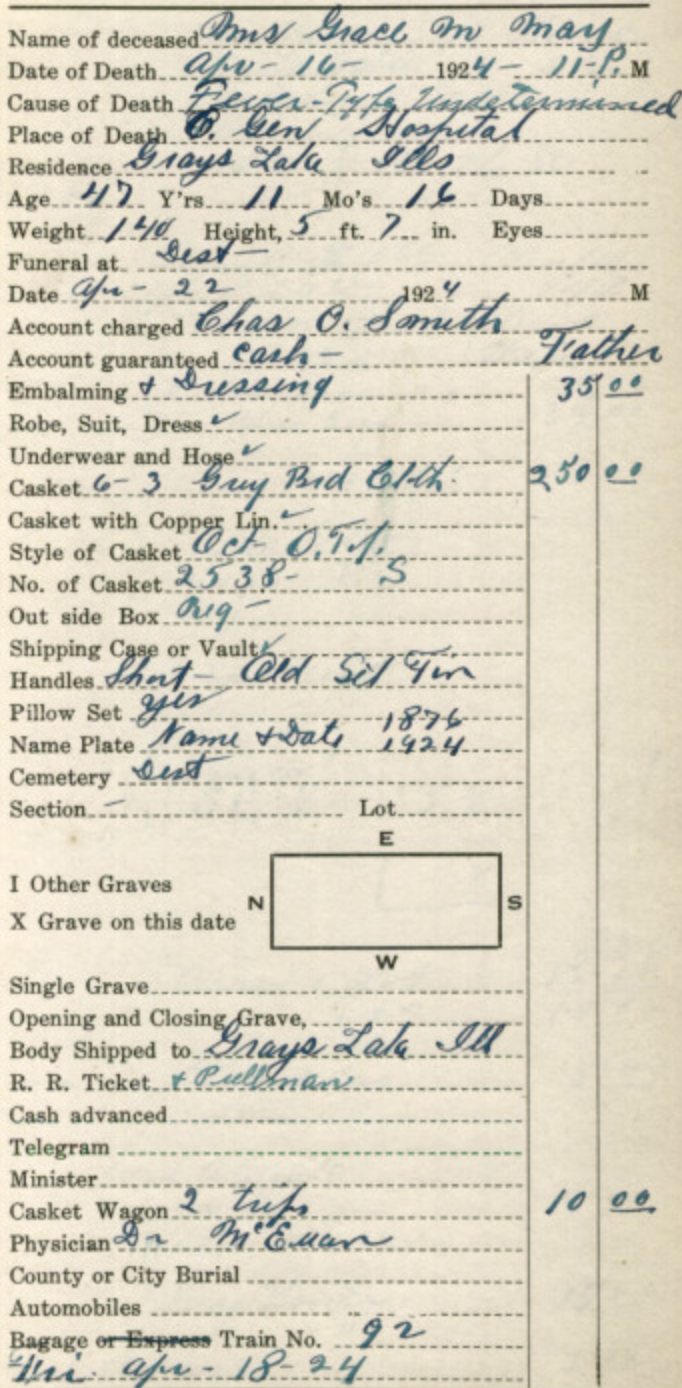 Name of deceased Mrs Grace M May
Date of Death Apr - 16 - 1924 - 11-P. M
Cause of Death Fever - Type Undetermined
Place of Death O. Gen Hospital
Residence Grays Lake Ills
Age 47 Y'rs 11 Mo's 16 Days
Weight 140 Height, 5 ft. 7 in. Eyes
Funeral at Dest -
Date Apr - 22 1924 M
Account charged Chas O. Smith
Account guaranteed Cash - Father
Embalming & Dressing 35 00
Robe, Suit, Dress ✓
Underwear and Hose ✓
Casket 6-3 Grey Brd Cloth. 250 00
Casket with Copper Lin. ✓
Style of Casket Oct
No. of Casket 2538 - S
Out side Box Reg -
Shipping Case or Vault ✓
Handles Short - Old Sil
Pillow Set yes
Name Plate Name & Date 1876
1924
Cemetery Dest
Section - Lot
E
I Other Graves
N S
X Grave on this date
W
Single Grave
Opening and Closing Grave,
Body Shipped to Grays Lake Ill
R. R. Ticket & Pullman
Cash advanced
Telegram
Minister
Casket Wagon 2 trips 10 00
Physician Dr McEwan
County or City Burial
Automobiles
Bagage or Express Train No. 92
Fri. Apr - 18 - 24